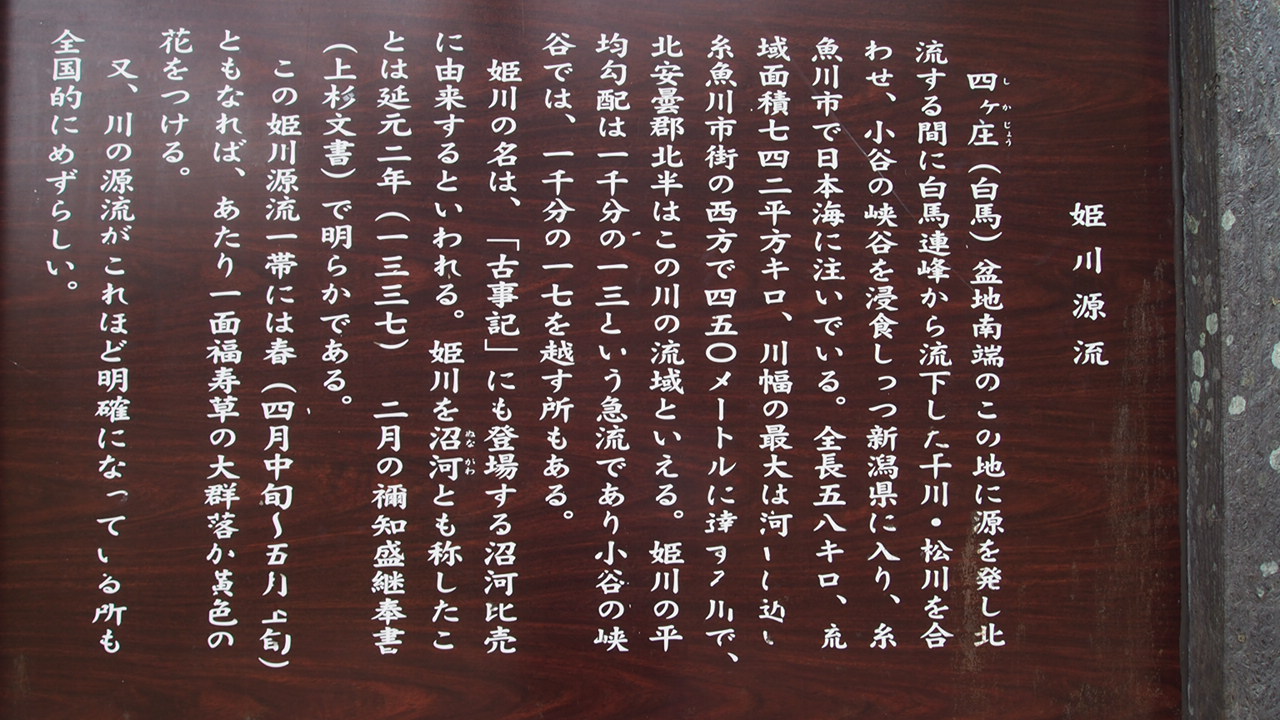 姫川源流
四ヶ庄（白馬）盆地南端のこの地に源を発し北
流する間に白馬連峰から流下した千川・松川を合
わせ、小谷の峡谷を浸食しつつ新潟県に入り、糸
魚川市で日本海に注いでいる。全長五八キロ、流
域面積七四二平方キロ、川幅の最大は河
糸魚川市街の西方で四五〇メートルに達する川で、
北安曇郡北半はこの川の流域といえる。姫川の平
均勾配は一千分の一三という急流であり小谷の峡
谷では、一千分の一七を越す所もある。
姫川の名は、「古事記」にも登場する沼河比売
に由来するといわれる。姫川を沼河とも称したこ
とは延元二年（一三三七）二月の禰知盛継奉書
（上杉文書）で明らかである。
この姫川源流一帯には春（四月中旬〜五月上旬）
ともなれば、あたり一面福寿草の大群落か黄色の
花をつける。
又、川の源流がこれほど明確になっている所も
全国的にめずらしい。